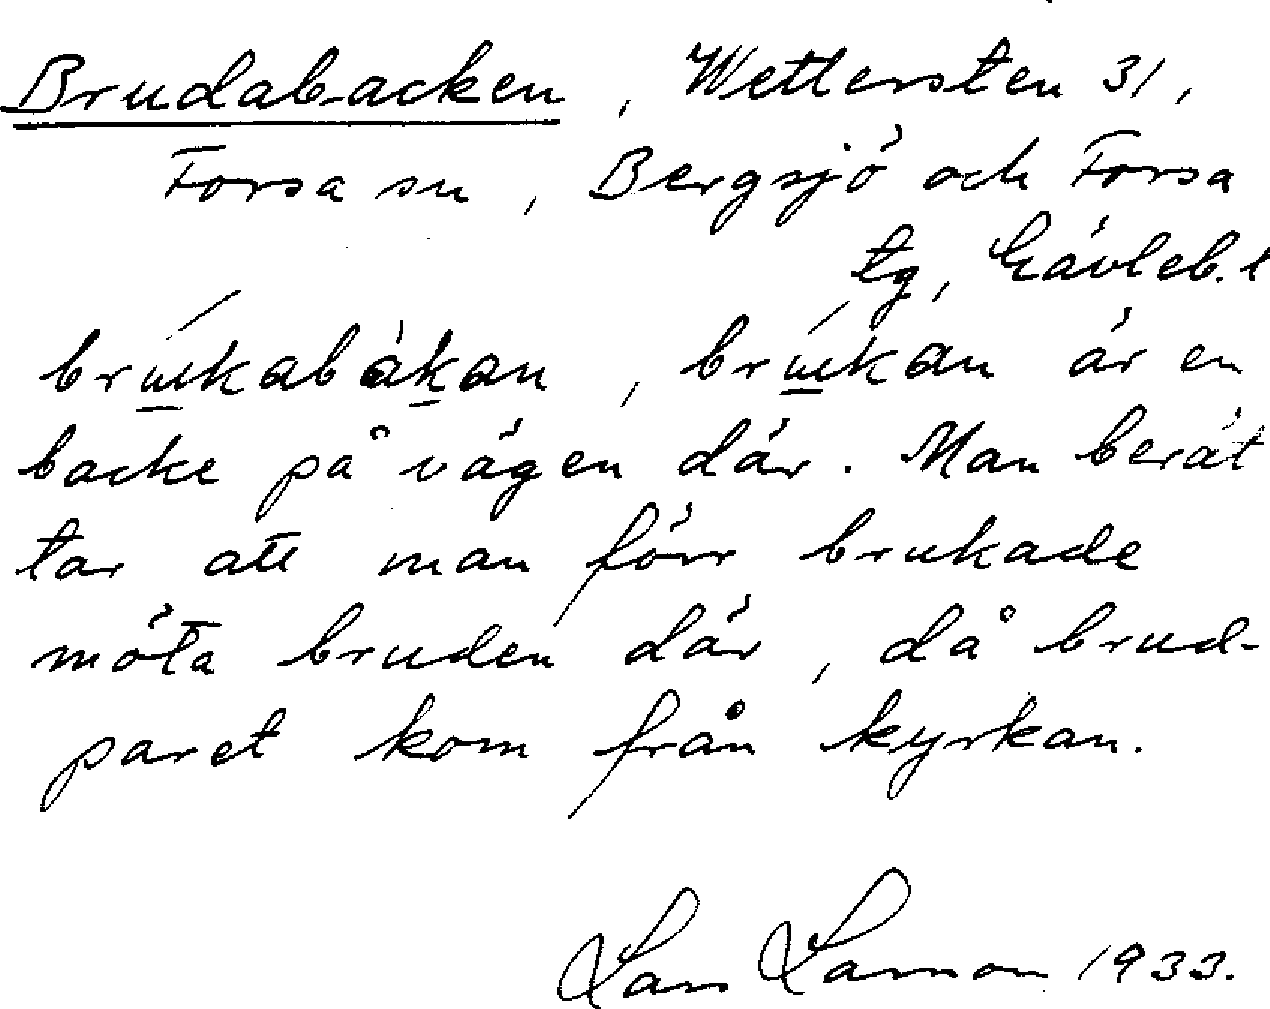 Brudabacken, Wettersten 31,
Forsa sn, Bergsjö och Forsa
tg, Gävleb. l
backe på vägen där. Man berät
tar att man förr brukade
möta bruden där, då brud-
paret kom från kyrkan.
Lars Larsson 1933.